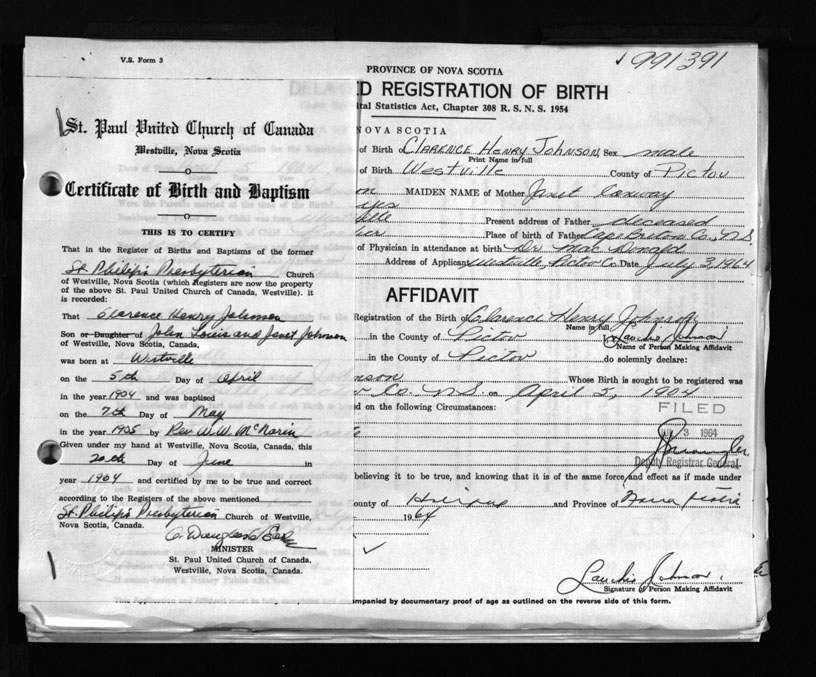 V.S. Form 3
St. Paul United Church of Canada
Westville, Nova Scotia
Certificate of Birth and Baptism
THIS IS TO CERTIFY
That in the Register of Births and Baptisms of the former
St. Philip's Presbyterian Church
of Westville, Nova Scotia (which Registers are now the property
of the above St. Paul United Church of Canada, Westville). it
is recorded:
That Clarence Henry Johnson
Son or Daughter of John Louis and Janet Johnson
was born at Westville
on the 5th Day of April
in the year 1904 and was baptised
on the 7th Day of May
in the year 1905 by Rev W. W.
Given under my hand at Westville, Nova Scotia, this
20th Day of June in
year 1964 and certified by me to be true and correct
according to the Registers of the above mentioned
St. Philip's Presbyterian Church of Westville,
Nova Scotia, Canada.
MINISTER
St. Paul United Church of Canada,
Westville, Nova Scotia, Canada.
991391
PROVINCE OF NOVA SCOTIA
D REGISTRATION OF BIRTH
ital Statistics Act, Chapter 308 R. S. N. S. 1954
NOVA SCOTIA
of Birth CLARENCE HENRY JOHNSON, Sex male
Print Name in full
of Birth Westville County of Pictou
MAIDEN NAME of Mother Janet Conway
yes
ville Present address of Father deceased
Place of birth of Father Cape Breton Co., N.S.
of Physician in attendance at birth Dr. MacDonald
Address of Applicant Westville, Pictou Co. Date July 3, 1964
AFFIDAVIT
Registration of the Birth of Clarence Henry Johnson
Name in full
in the County of Pictou Johnson
Name of Person Making Affidavit
in the County of Pictou do solemnly declare:
nson Whose Birth is sought to be registered was
Co. N.S. on April 5, 1904
d on the following Circumstances:
FILED
3 1964
Deputy Registrar General
believing it to be true, and knowing that it is of the same force and effect as if made under
ounty of Halifax and Province of Nova Scotia
1964
Johnson
Signature of Person Making Affidavit
This Application and Affidavit must be fully completed and
mpanied by documentary proof of age as outlined on the reverse side of this form.